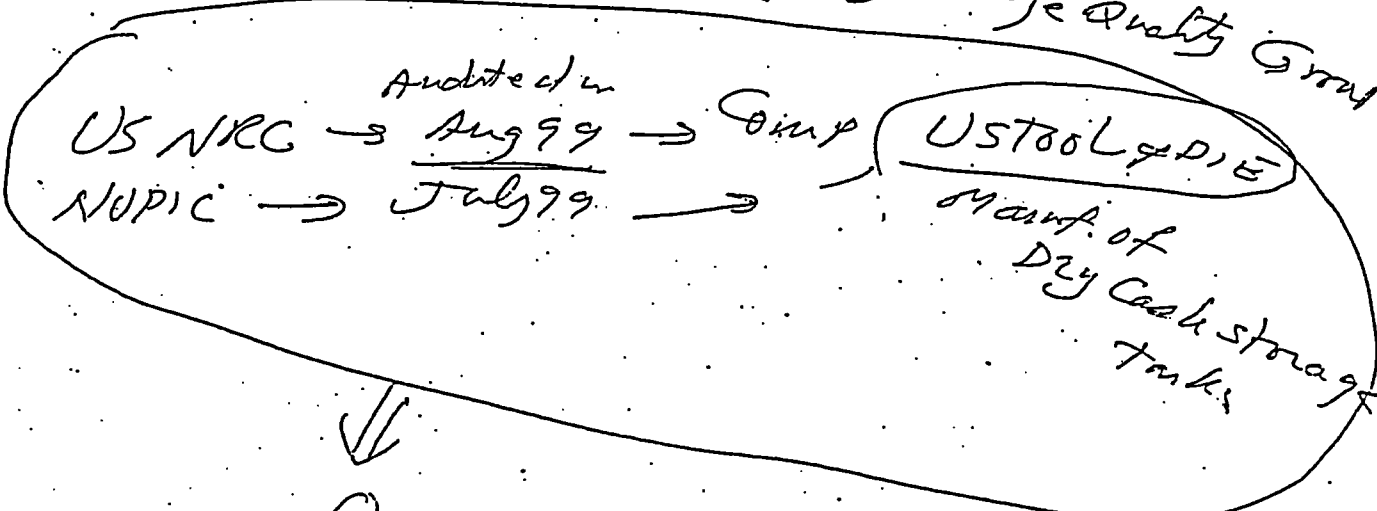 Quality Group
Audited in
US NRC → Aug 99 → Comp, US TOOL & DIE
NUPIC → July 99 →
Manf. of
Dry Cask storage
Tanks